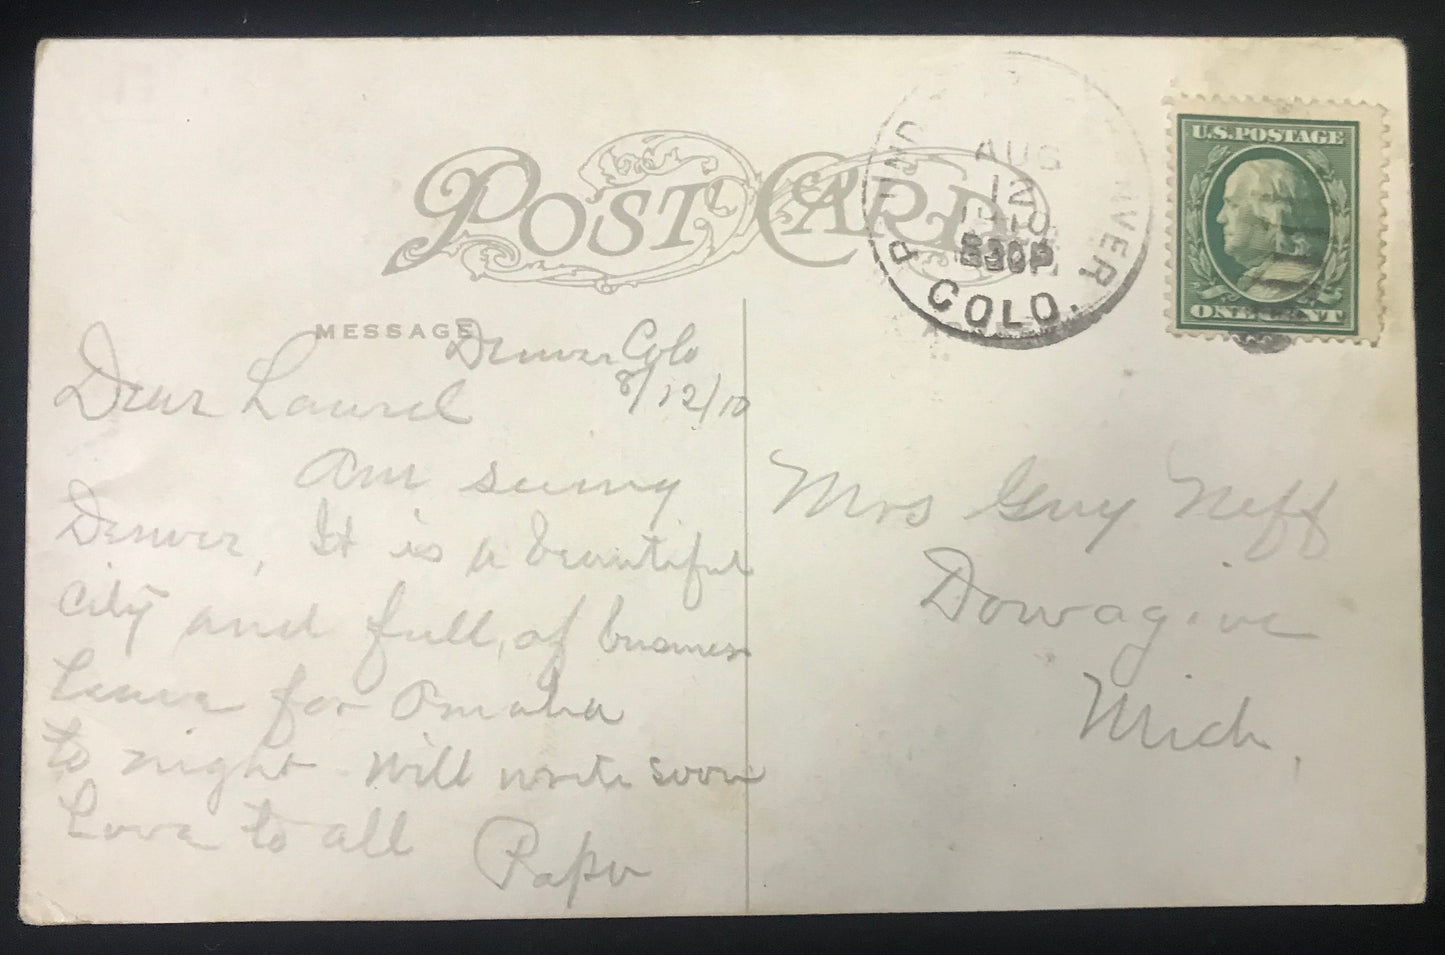 POST CARD
AUG
12
1910
530P
DENVER
COLO.
U.S.POSTAGE
ONE CENT
MESSAGE
Denver Colo
8/12/10
Dear Laurel
Am seeing
Denver, It is a beautiful
city and full of business
Leave for Omaha
to night. Will write soon
Love to all
Papa
Mrs Guy Neff
Dowagiac
Mich,